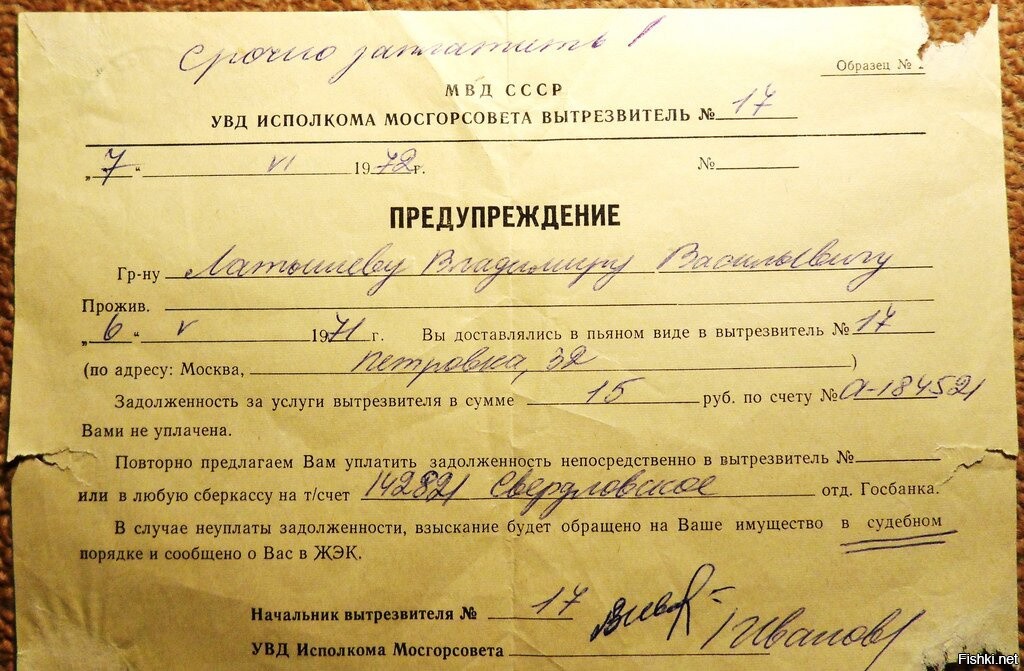 Срочно заплатить!
Образец №
МВД СССР
УВД ИСПОЛКОМА МОСГОРСОВЕТА ВЫТРЕЗВИТЕЛЬ № 17
„7“ VI 1972г. №
ПРЕДУПРЕЖДЕНИЕ
Гр-ну Латышеву Владимиру Васильевичу
Прожив.
„6“ V 1971 г. Вы доставлялись в пьяном виде в вытрезвитель № 17
(по адресу: Москва, Петровка, 32)
Задолженность за услуги вытрезвителя в сумме 15 руб. по счету № А-184521
Вами не уплачена.
Повторно предлагаем Вам уплатить задолженность непосредственно в вытрезвитель №
или в любую сберкассу на т/счет 142821 Свердловское отд. Госбанка.
В случае неуплаты задолженности, взыскание будет обращено на Ваше имущество в судебном
порядке и сообщено о Вас в ЖЭК.
Начальник вытрезвителя № 17
УВД Исполкома Мосгорсовета Иванов
Fishki.net